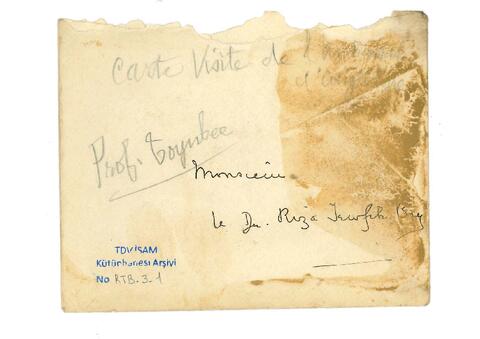 Carte Visite de l'
d'
Prof. Toynbee
Monsieur
le Dr. Riza Tewfik Bey
TDV İSAM
Kütüphanesi Arşivi
No RTB.3.1